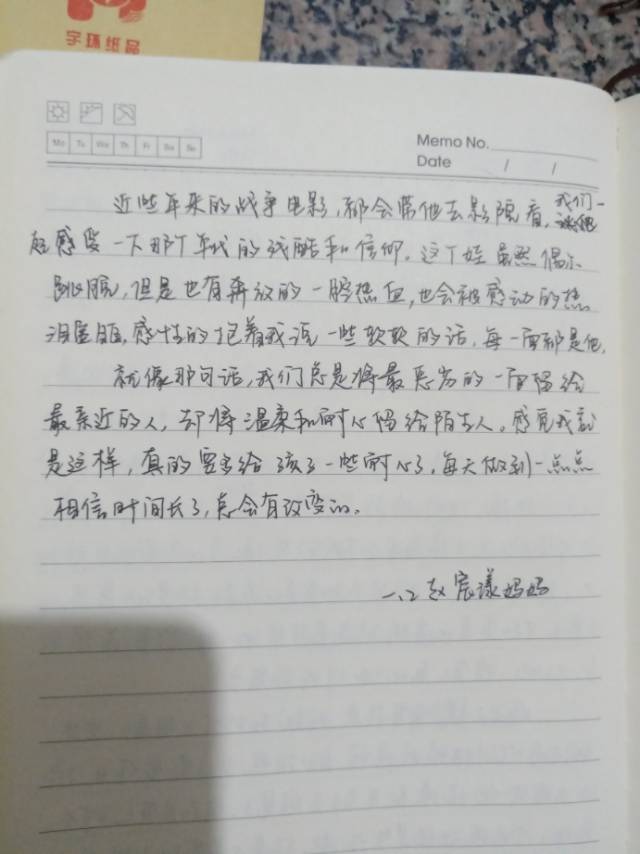 字环纸品
Mo Tu We Th Fr Sa Su
Memo No.
Date / /
近些年来的战争电影,都会带他去影院看,我们一
起感受一下那个年代的残酷和信仰。这个娃虽然偶尔
跳脱,但是也有奔放的一腔热血,也会被感动的热
泪盈眶,感性的抱着我说一些软软的话,每一面都是他。
就像那句话,我们总是将最恶劣的一面留给
最亲近的人,却将温柔和耐心留给陌生人。感觉我就
是这样,真的要多给孩子一些耐心了,每天做到一点点
相信时间长了,总会有改变的。
一.2 赵宸漾妈妈